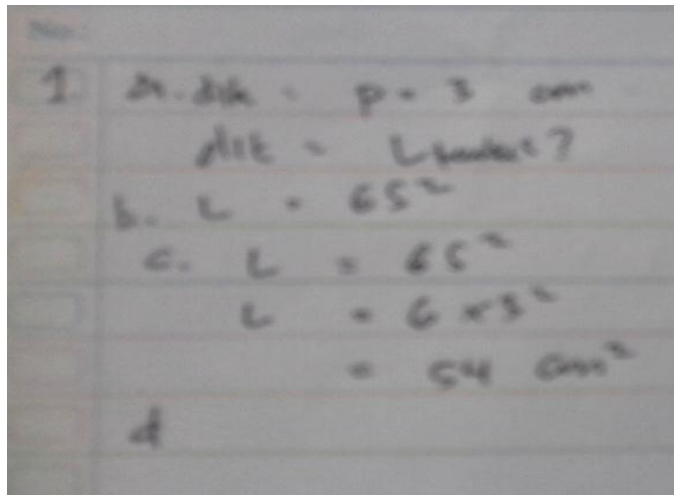 No.
1 a. dik = p = 3 cm
dit = L ?
b. L = 6s²
c. L = 6s²
L = 6 x 3²
= 54 cm²
d